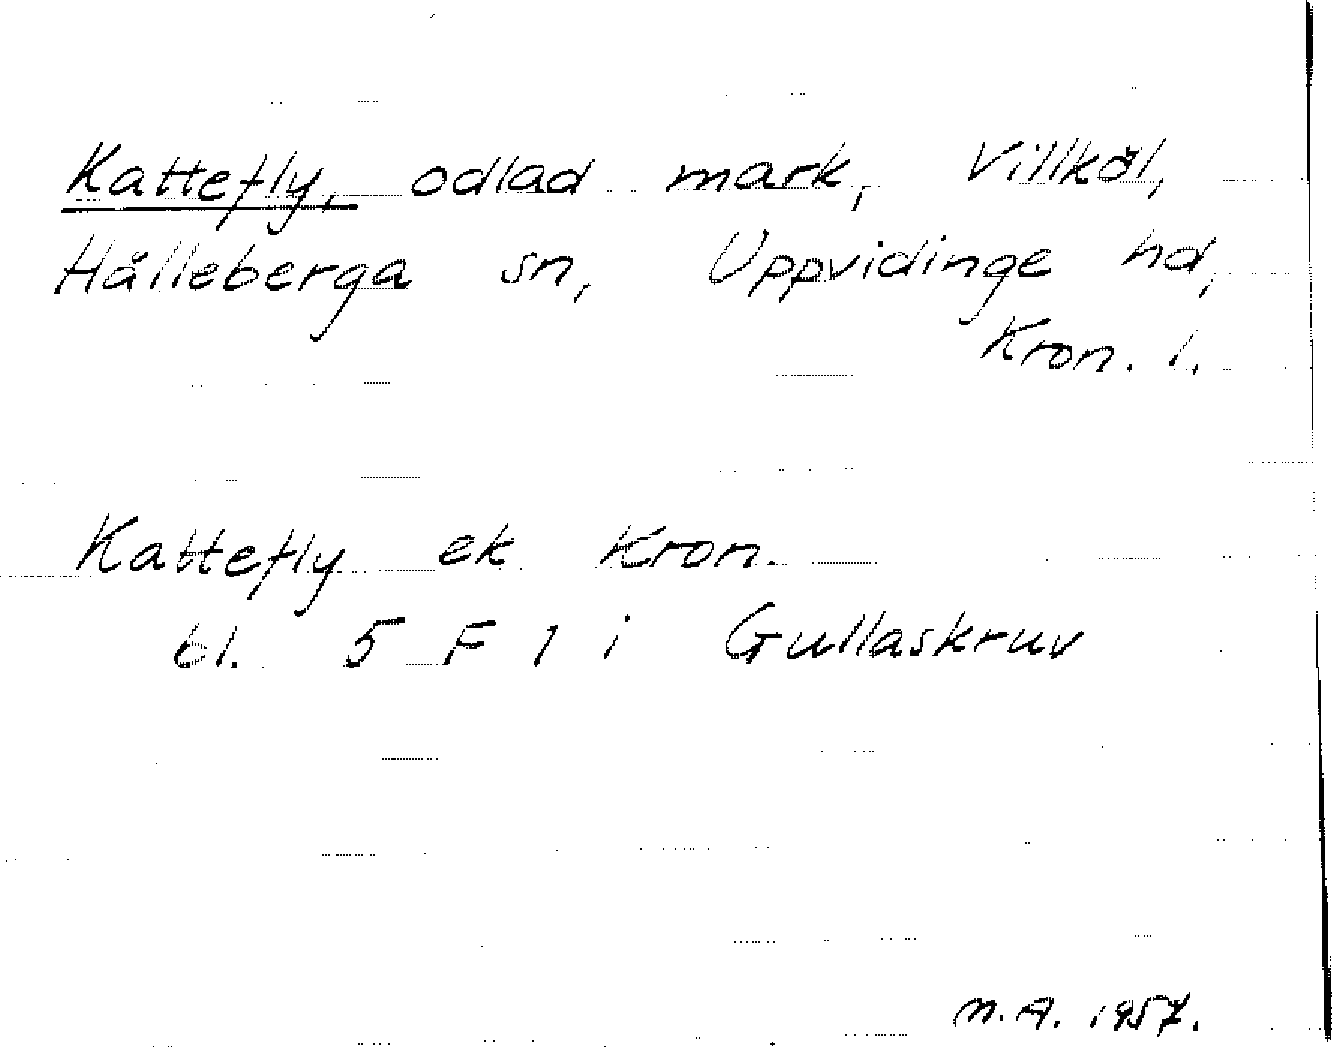 Kattefly, odlad mark, Villköl,
Hälleberga sn, Uppvidinge hd,
Kron. l.
Kattefly ek Kron.
bl. 5 F 1 i Gullaskruv
M.A. 1957.